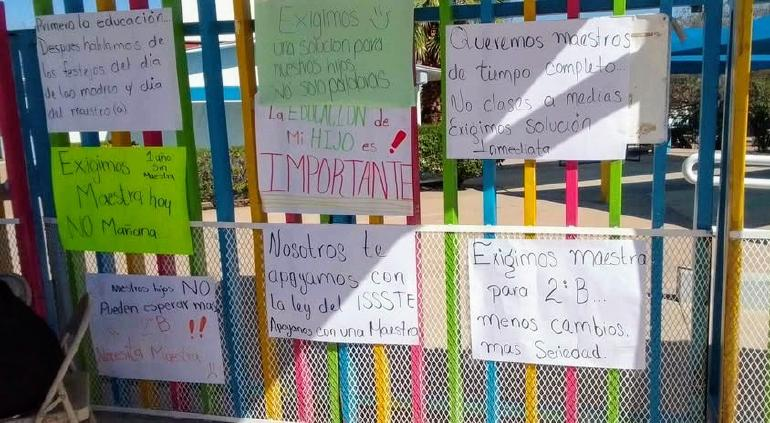 Primero la educación...
Despues hablamos de
los festejos del día
de las madres y día
del maestro(a)
Exigimos
una solucion para
nuestros hijos
NO solo palabras
La EDUCACION de
Mi HIJO es !
IMPORTANTE
Queremos maestros
de tiempo completo...
No clases a medias
Exigimos solución
Inmediata
Exigimos 1 año
Sin
Maestra
Maestra hoy
NO Mañana
Nuestros hijos NO
Pueden esperar mas
2º B !!
Necesita Maestra
Nosotros te
apoyamos con
la ley del ISSSTE
Apoyanos con una Maestra
Exigimos maestra
para 2º B...
menos cambios.
mas Seriedad.